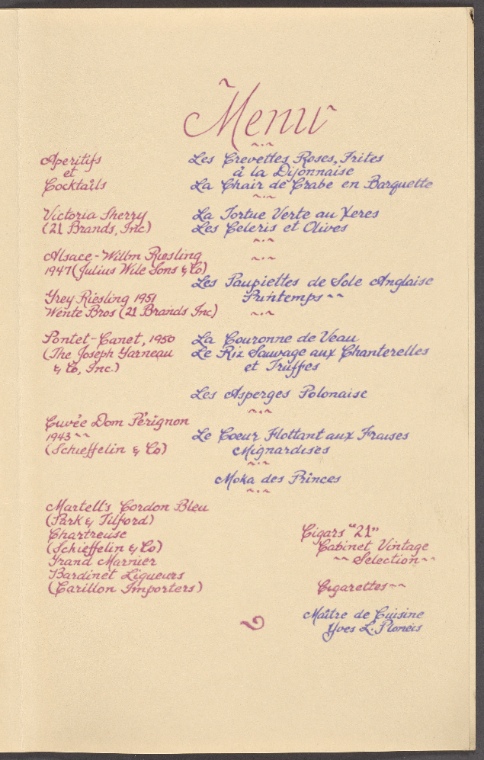 Menu
Aperitifs
et
Cocktails
Les Crevettes Roses, Frites
à la Dijonnaise
La Chair de Crabe en Barquette
Victoria Sherry
(21 Brands, Inc)
La Tortue Verte au Xeres
Les Celeris et Olives
Alsace-Willm Riesling
1947 (Julius Wile Sons & Co)
Grey Riesling 1951
Wente Bros (21 Brands Inc)
Les Paupiettes de Sole Anglaise
Printemps ~~
Pontet-Canet, 1950
(The Joseph Garneau
& Co, Inc.)
La Couronne de Veau
Le Riz Sauvage aux Chanterelles
et Truffes
Les Asperges Polonaise
Cuvée Dom Pérignon
1943 ~~
(Schieffelin & Co)
Le Coeur Flottant aux Fraises
Mignardises
Moka des Princes
Martell's Cordon Bleu
(Park & Tilford)
Chartreuse
(Schieffelin & Co)
Grand Marnier
Bardinet Liqueurs
(Carillon Importers)
Cigars "21"
Cabinet Vintage
~~ Selection ~~
Cigarettes ~~
Maître de Cuisine
Yves L.